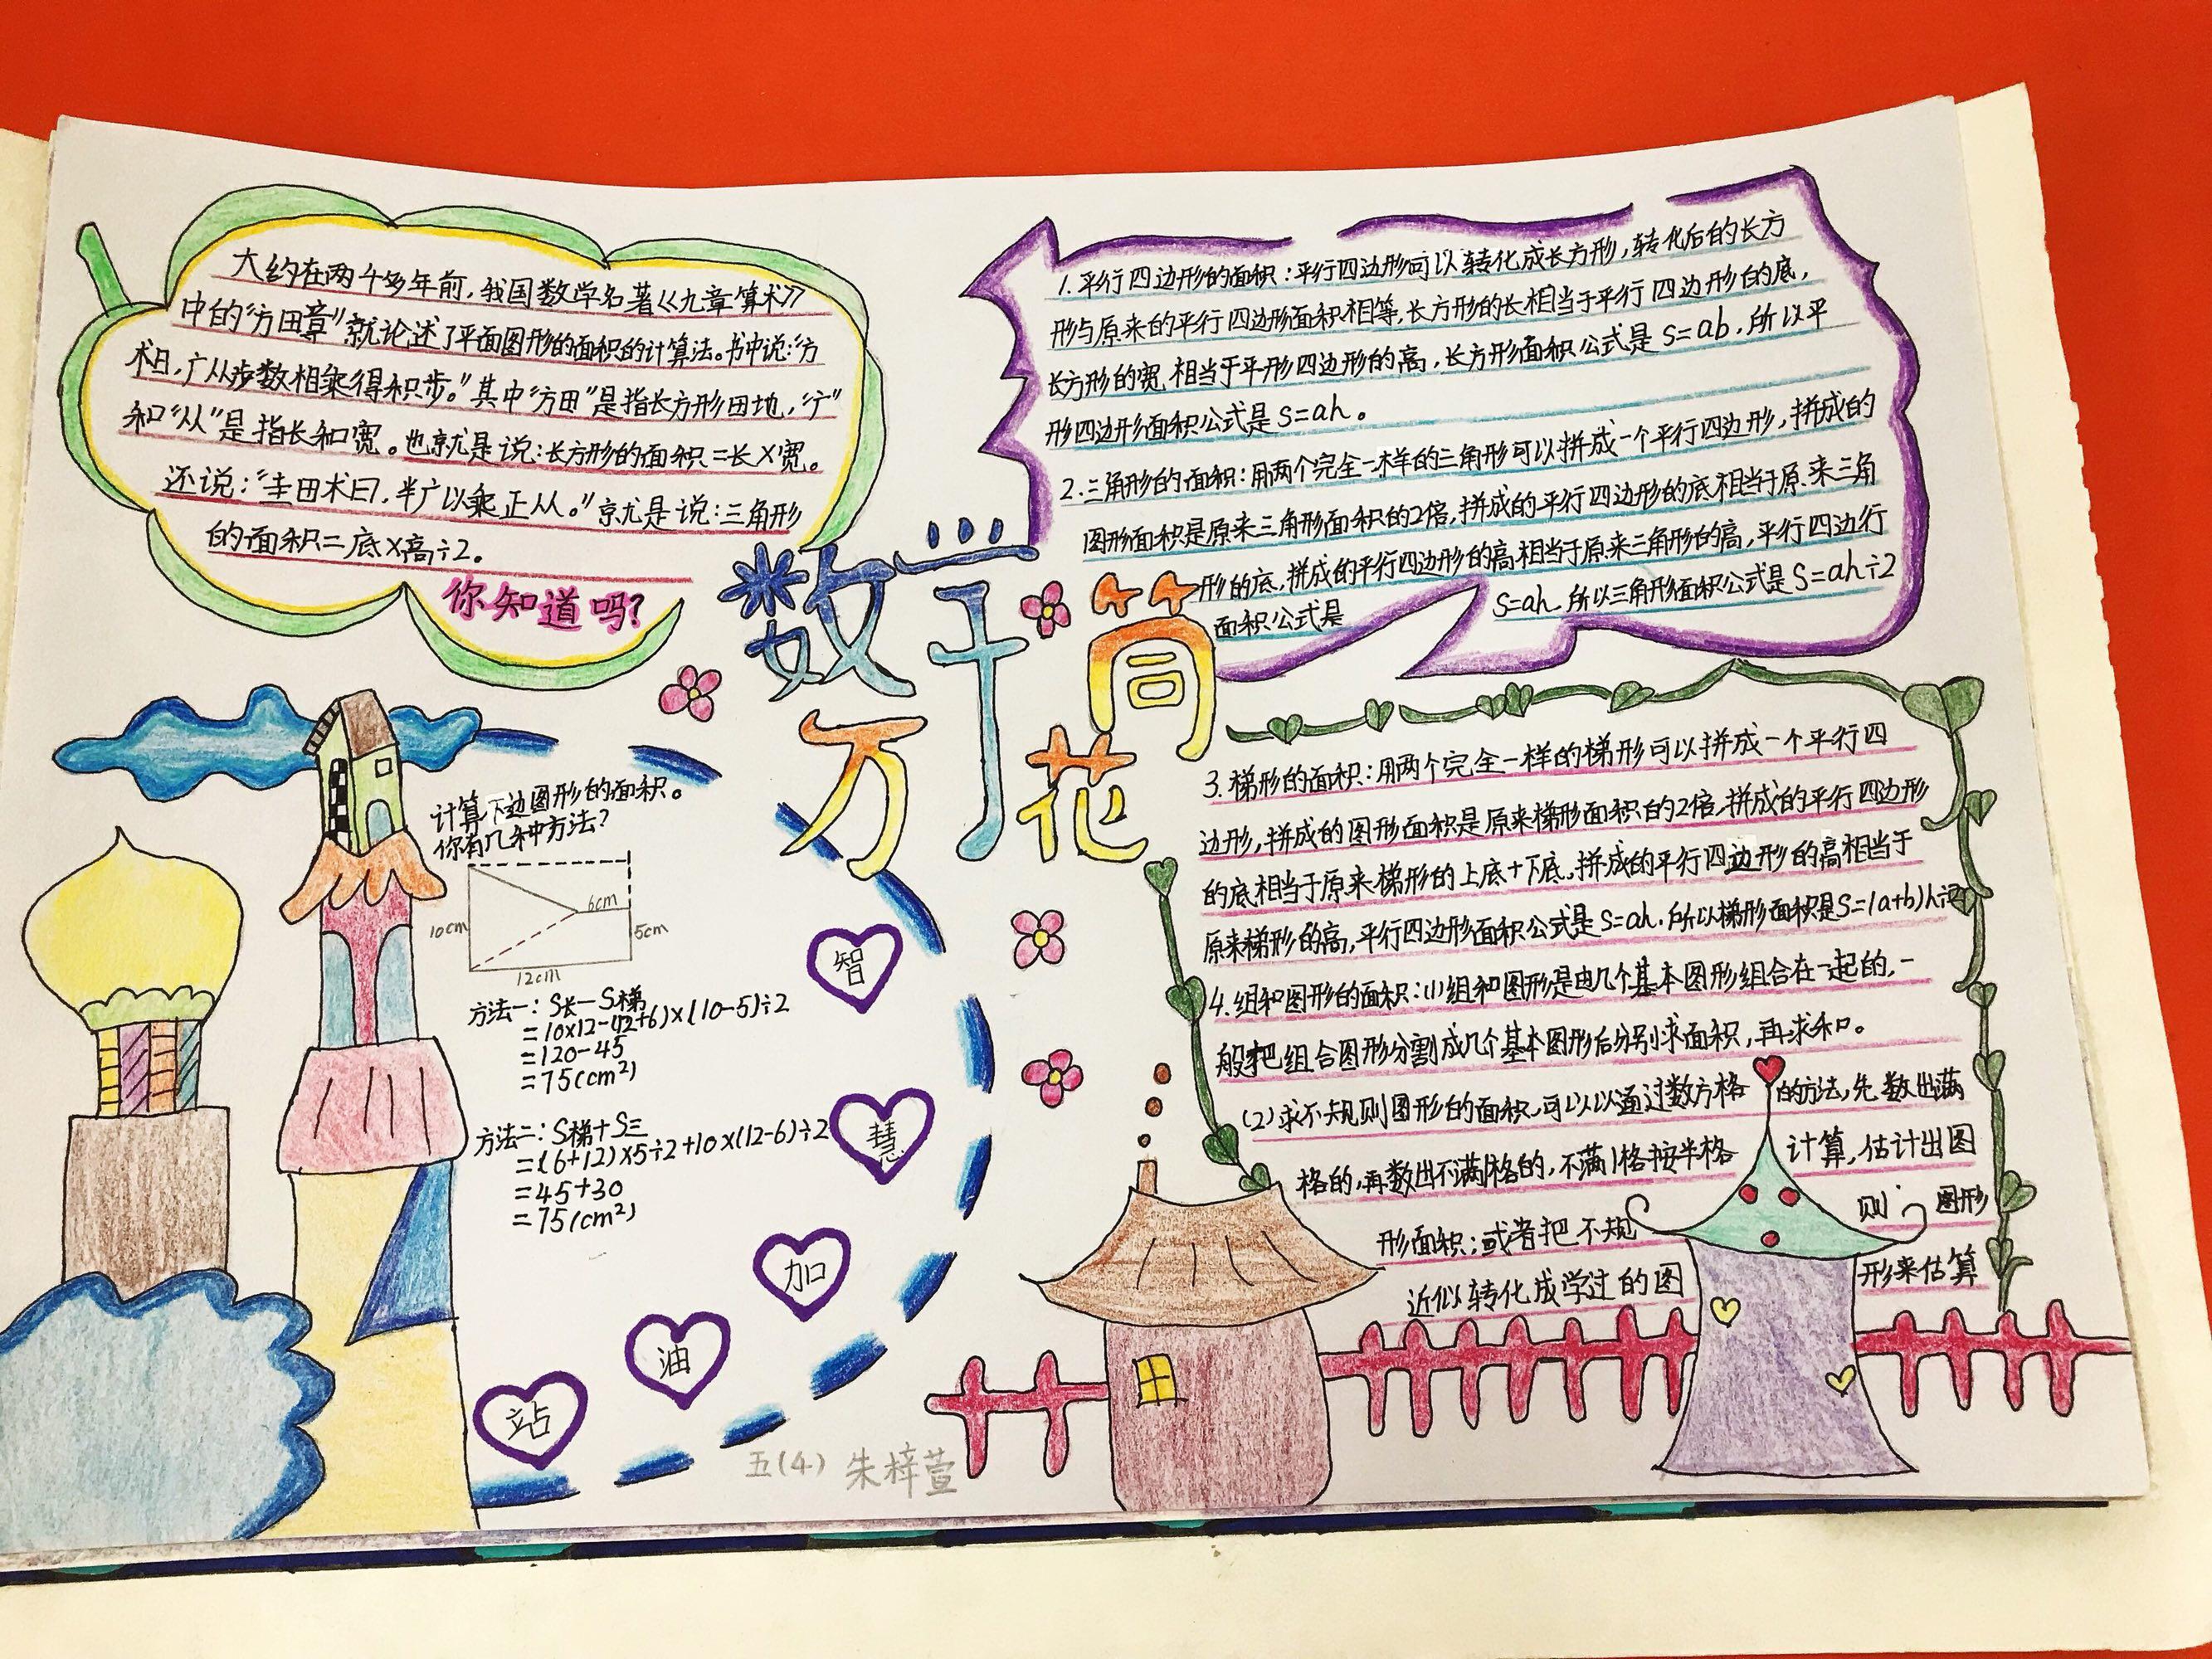 大约在两千多年前，我国数学名著《九章算术》
中的"方田章"就论述了平面图形的面积的计算法。书中说："方
术曰，广从步数相乘得积步。"其中"方田"是指长方形田地，"广"
和"从"是指长和宽。也就是说：长方形的面积=长×宽。
还说："圭田术曰，半广以乘正从。"就是说：三角形
的面积=底×高÷2。
你知道吗？
数学
万花筒
1.平行四边形的面积：平行四边形可以转化成长方形，转化后的长方
形与原来的平行四边形面积相等，长方形的长相当于平行四边形的底，
长方形的宽相当于平形四边形的高，长方形面积公式是S=ab，所以平
形四边形面积公式是S=ah。
2.三角形的面积：用两个完全一样的三角形可以拼成一个平行四边形，拼成的
图形面积是原来三角形面积的2倍，拼成的平行四边形的底相当于原来三角
形的底，拼成的平行四边形的高相当于原来三角形的高，平行四边行
面积公式是 S=ah，所以三角形面积公式是S=ah÷2
计算下边图形的面积。
你有几种方法？
6cm
10cm
5cm
12cm
方法一：S长-S梯
=10×12-(12+6)×(10-5)÷2
=120-45
=75(cm²)
方法二：S梯+S三
=(6+12)×5÷2+10×(12-6)÷2
=45+30
=75(cm²)
智
慧
加
油
站
3.梯形的面积：用两个完全一样的梯形可以拼成一个平行四
边形，拼成的图形面积是原来梯形面积的2倍，拼成的平行四边形
的底相当于原来梯形的上底+下底，拼成的平行四边形的高相当于
原来梯形的高，平行四边形面积公式是S=ah，所以梯形面积是S=(a+b)h÷2
4.组和图形的面积：(1)组和图形是由几个基本图形组合在一起的，一
般把组合图形分割成几个基本图形后分别求面积，再求和。
(2)求不规则图形的面积，可以以通过数方格 的方法，先数出满
格的，再数出不满1格的，不满1格按半格 计算，估计出图
形面积；或者把不规 则 图形
近似转化成学过的图 形来估算
五(4) 朱梓萱